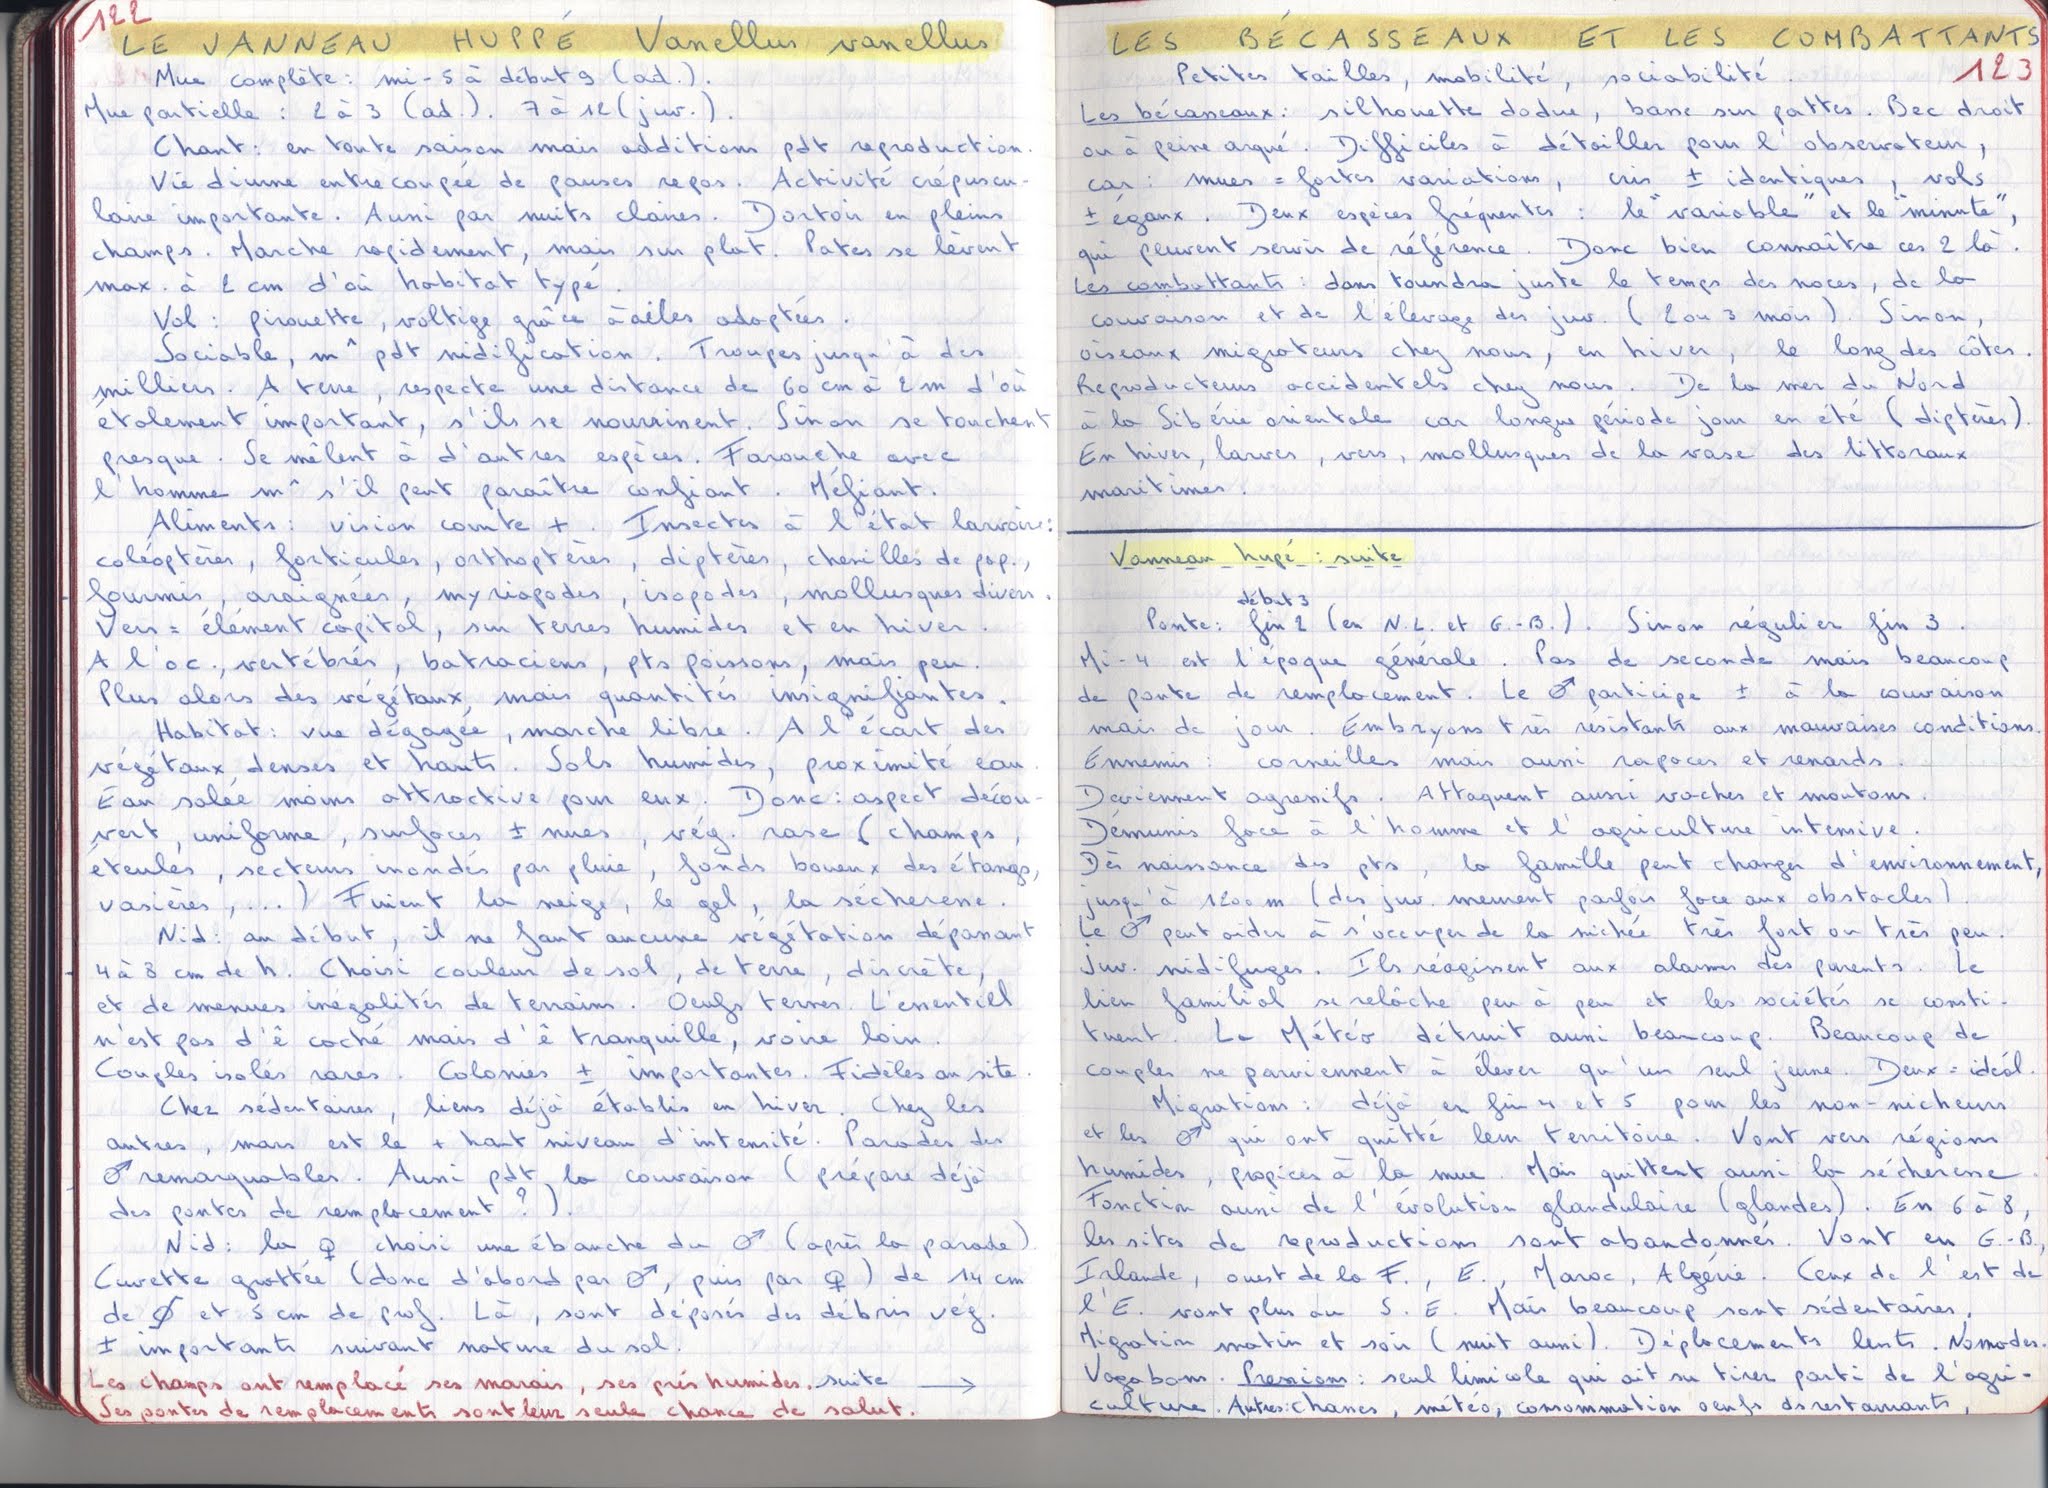 122
LE VANNEAU HUPPÉ Vanellus vanellus
Mue complète : mi-5 à début 9 (ad.).
Mue partielle : 2 à 3 (ad.). 7 à 12 (juv.).
Chant : en toute saison mais additions pdt reproduction.
Vie diurne entrecoupée de pauses repos. Activité crépuscu-
laire importante. Aussi par nuits claires. Dortoir en pleins
champs. Marche rapidement, mais sur plat. Pates se lèvent
max. à 2 cm d'où habitat typé.
Vol : pirouette, voltige grâce à ailes adaptées.
Sociable, m^ pdt nidification. Troupes jusqu'à des
milliers. A terre, respecte une distance de 60 cm à 2 m d'où
étalement important, s'ils se nourrissent. Sinon se touchent
presque. Se mêlent à d'autres espèces. Farouche avec
l'homme m^ s'il peut paraître confiant. Méfiant.
Aliments : vision compte +. Insectes à l'état larvaire :
coléoptères, forficules, orthoptères, diptères, chenilles de pap.,
fourmis, araignées, myriapodes, isopodes, mollusques divers.
Vers = élément capital, sur terres humides et en hiver.
A l'oc., vertébrés, batraciens, pts poissons, mais peu.
Plus alors des végétaux, mais quantités insignifiantes.
Habitat : vue dégagée, marche libre. A l'écart des
végétaux denses et hauts. Sols humides, proximité eau.
Eau salée moins attractive pour eux. Donc : aspect décou-
vert, uniforme, surfaces ± nues, vég. rase (champs,
éteules, secteurs inondés par pluie, fonds boueux des étangs,
vasières, ...) Fuient la neige, le gel, la sécheresse.
Nid : au début, il ne faut aucune végétation dépassant
4 à 8 cm de h. Choisi couleur de sol, de terre, discrète,
et de menues inégalités de terrains. Oeufs ternes. L'essentiel
n'est pas d'ê caché mais d'ê tranquille, voire loin.
Couples isolés rares. Colonies ± importantes. Fidèles au site.
Chez sédentaires, liens déjà établis en hiver. Chez les
autres, mars est le + haut niveau d'intensité. Parades des
♂ remarquables. Aussi pdt la couvaison (prépare déjà
des pontes de remplacement ?).
Nid : la ♀ choisi une ébauche du ♂ (après la parade).
Cuvette grattée (donc d'abord par ♂, puis par ♀) de 14 cm
de Ø et 5 cm de prof. Là, sont déposés des débris vég.
± importants suivant nature du sol.
Les champs ont remplacé ses marais, ses prés humides. suite →
Ses pontes de remplacements sont leur seule chance de salut.
LES BÉCASSEAUX ET LES COMBATTANTS
123
Petites tailles, mobilité, sociabilité.
Les bécasseaux : silhouette dodue, basse sur pattes. Bec droit
ou à peine arqué. Difficiles à détailler pour l'observateur,
car : mues = fortes variations, cris ± identiques, vols
± égaux. Deux espèces fréquentes : le "variable" et le "minute",
qui peuvent servir de référence. Donc bien connaître ces 2 là.
Les combattants : dans toundra juste le temps des noces, de la
couvaison et de l'élevage des juv. (2 ou 3 mois). Sinon,
oiseaux migrateurs chez nous, en hiver, le long des côtes.
Reproducteurs accidentels chez nous. De la mer du Nord
à la Sibérie orientale car longue période jour en été (diptères).
En hiver, larves, vers, mollusques de la vase des littoraux
maritimes.
Vanneau hupé : suite
début 3
Ponte : fin 2 (en N.L. et G.-B.). Sinon régulier fin 3.
Mi-4 est l'époque générale. Pas de seconde mais beaucoup
de ponte de remplacement. Le ♂ participe ± à la couvaison
mais de jour. Embryons très résistants aux mauvaises conditions.
Ennemis : corneilles mais aussi rapaces et renards.
Deviennent agressifs. Attaquent aussi vaches et moutons.
Démunis face à l'homme et l'agriculture intensive.
Dès naissance des pts, la famille peut changer d'environnement,
jusqu'à 1200 m (des juv. meurent parfois face aux obstacles).
Le ♂ peut aider à s'occuper de la nichée très fort ou très peu.
Juv. nidifuges. Ils réagissent aux alarmes des parents. Le
lien familial se relâche peu à peu et les sociétés se consti-
tuent. La Météo détruit aussi beaucoup. Beaucoup de
couples ne parviennent à élever qu'un seul jeune. Deux = idéal.
Migrations : déjà en fin 4 et 5 pour les non-nicheurs
et les ♂ qui ont quitté leur territoire. Vont vers régions
humides, propices à la mue. Mais quittent aussi la sécheresse.
Fonction aussi de l'évolution glandulaire (glandes). En 6 à 8,
les sites de reproductions sont abandonnés. Vont en G.-B.,
Irlande, ouest de la F., E., Maroc, Algérie. Ceux de l'est de
l'E. vont plus au S. E. Mais beaucoup sont sédentaires.
Migration matin et soir (nuit aussi). Déplacements lents. Nomades.
Vagabons. Pressions : seul limicole qui ait su tirer parti de l'agri-
culture. Autres : chasses, météo, consommation oeufs ds restaurants,